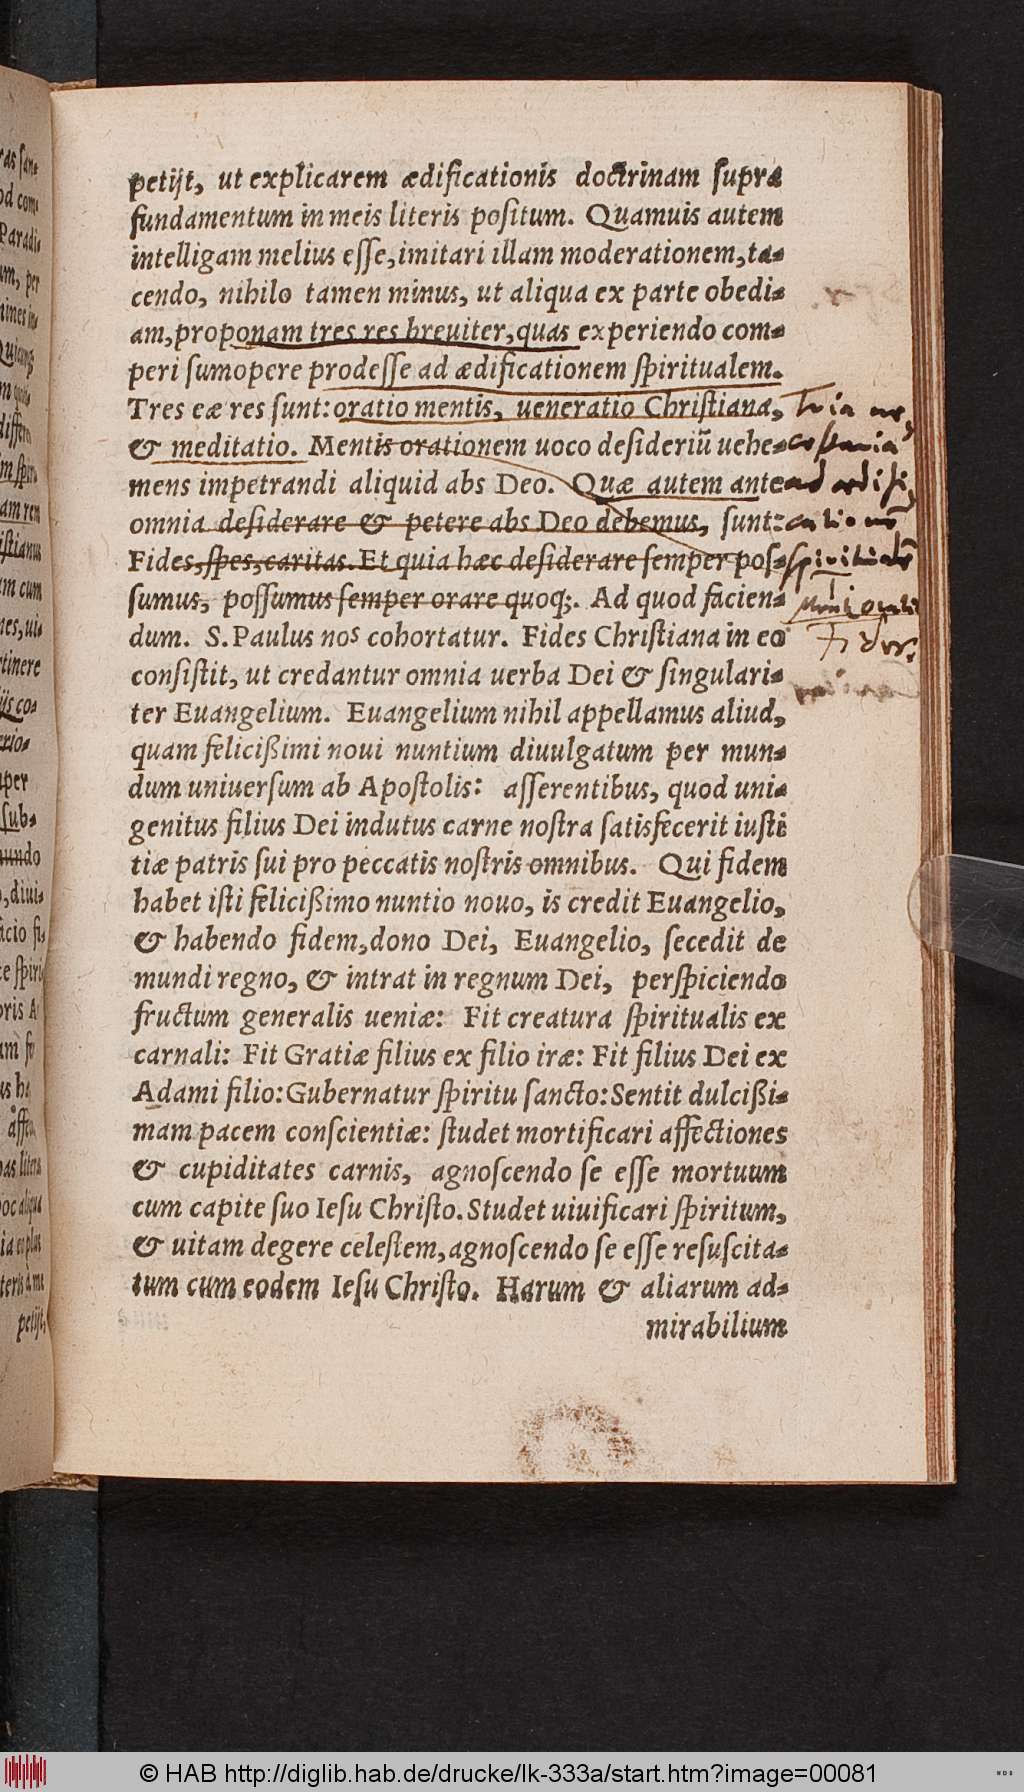 petijt, ut explicarem ædificationis doctrinam supra
fundamentum in meis literis positum. Quamuis autem
intelligam melius esse, imitari illam moderationem, ta-
cendo, nihilo tamen minus, ut aliqua ex parte obedi-
am, proponam tres res breuiter, quas experiendo com-
peri sumopere prodesse ad ædificationem spiritualem.
Tres eæ res sunt: oratio mentis, ueneratio Christiana,
& meditatio. Mentis orationem uoco desideriũ uehe-
mens impetrandi aliquid abs Deo. Quæ autem ante
omnia desiderare & petere abs Deo debemus, sunt:
Fides, spes, caritas. Et quia hæc desiderare semper pos-
sumus, possumus semper orare quoq;. Ad quod facien-
dum. S. Paulus nos cohortatur. Fides Christiana in eo
consistit, ut credantur omnia uerba Dei & singulari-
ter Euangelium. Euangelium nihil appellamus aliud,
quam felicißimi noui nuntium diuulgatum per mun-
dum uniuersum ab Apostolis: asserentibus, quod uni-
genitus filius Dei indutus carne nostra satisfecerit iusti
tiæ patris sui pro peccatis nostris omnibus. Qui fidem
habet isti felicißimo nuntio nouo, is credit Euangelio,
& habendo fidem, dono Dei, Euangelio, secedit de
mundi regno, & intrat in regnum Dei, perspiciendo
fructum generalis ueniæ: Fit creatura spiritualis ex
carnali: Fit Gratiæ filius ex filio iræ: Fit filius Dei ex
Adami filio: Gubernatur spiritu sancto: Sentit dulcißi-
mam pacem conscientiæ: studet mortificari affectiones
& cupiditates carnis, agnoscendo se esse mortuum
cum capite suo Iesu Christo. Studet uiuificari spiritum,
& uitam degere celestem, agnoscendo se esse resuscita-
tum cum eodem Iesu Christo. Harum & aliarum ad-
mirabilium
Tria ne
cessaria
ad ædifi
cationẽ
spiritualẽ
Fides.
© HAB http://diglib.hab.de/drucke/lk-333a/start.htm?image=00081